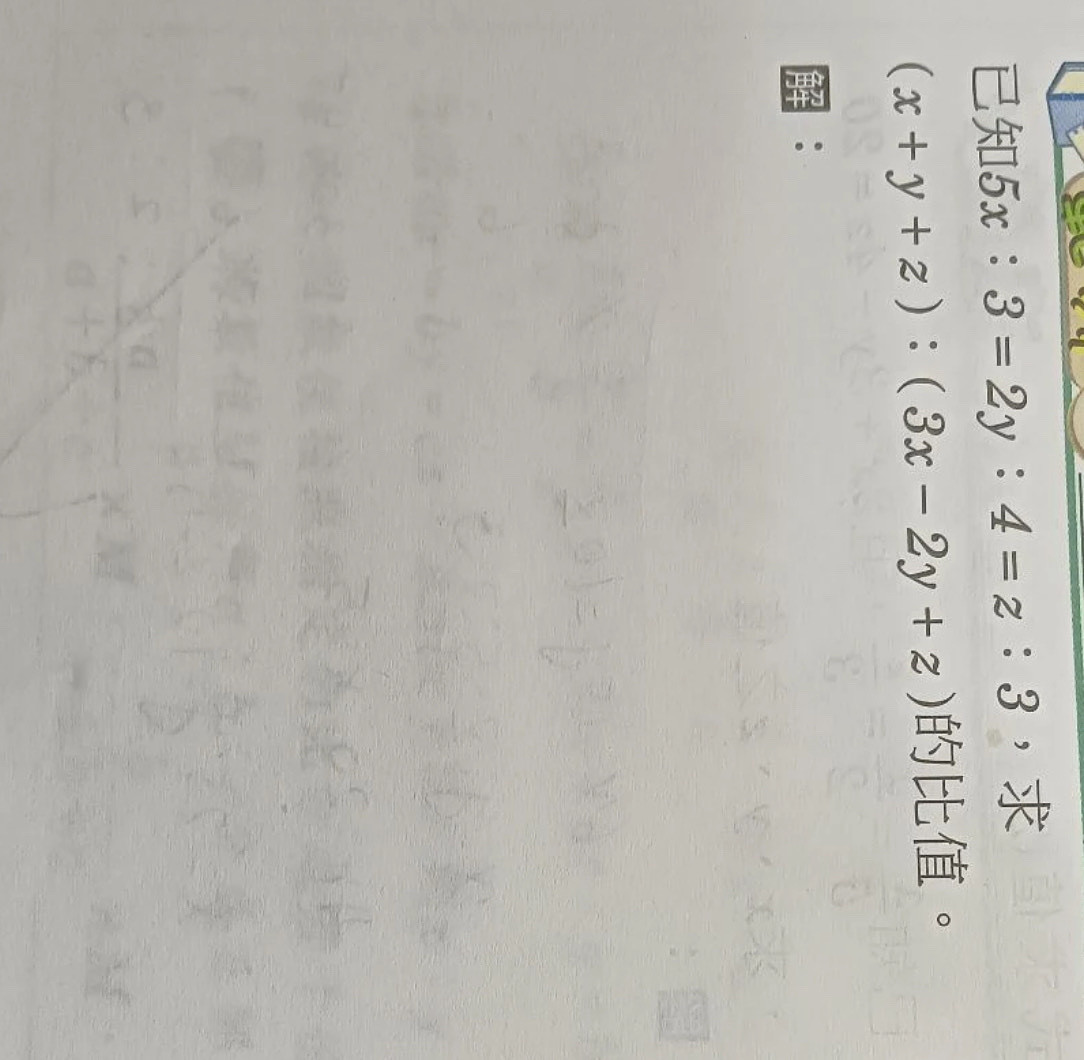 已知5x：3=2y：4=z：3，求
(x+y+z)：(3x-2y+z)的比值。
解：